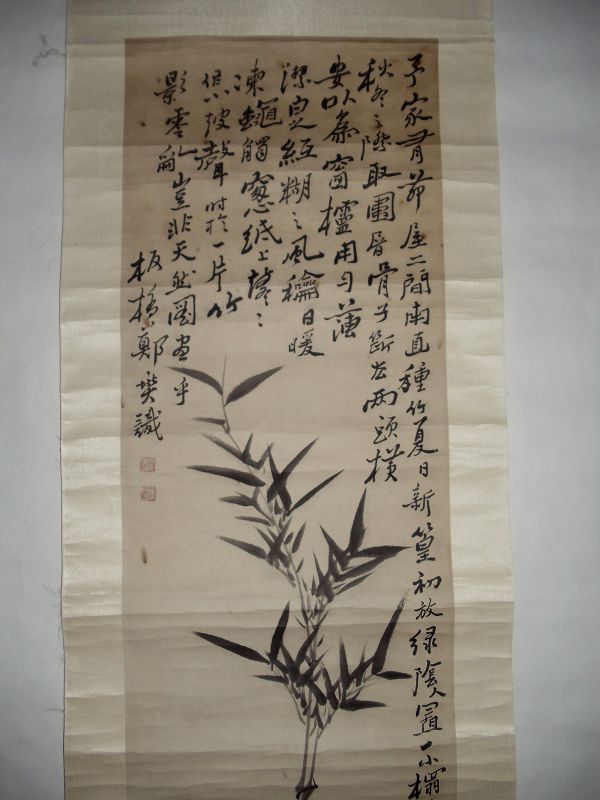 予家有茆屋二間南直種竹夏日新篁初放綠陰置一小榻
秋冬之際取圍屏骨子斷去兩頭橫
安以為窗櫺用勻薄
潔白紙糊之風龢日暖
凍蠅觸窻紙上鼕〻
聲时於一片竹
影零亂豈非天然圖畫乎
板橋鄭燮識